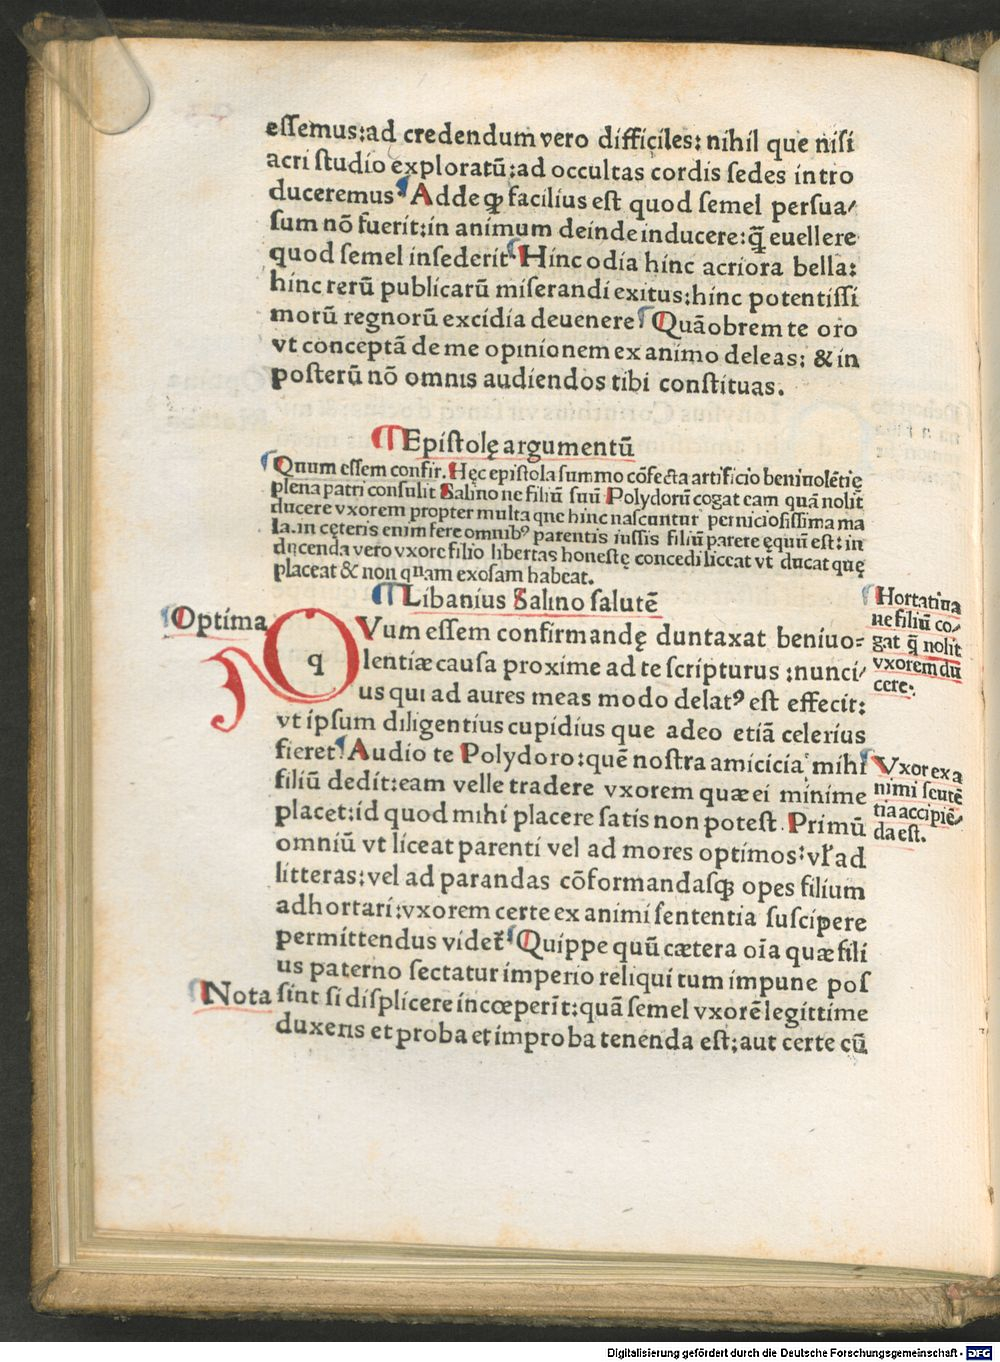 essemus:ad credendum vero difficiles: nihil que nisi
acri studio exploratū:ad occultas cordis sedes intro
duceremus Adde ꝙ facilius est quod semel persua/
sum nō fuerit:in animum deinde inducere:q̄ euellere
quod semel insederit Hinc odia hinc acriora bella:
hinc rerū publicarū miserandi exitus:hinc potentissi
morū regnorū excidia deuenere Quāobrem te oro
vt conceptā de me opinionem ex animo deleas: & in
posterū nō omnis audiendos tibi constituas.
Epistolę argumentū
Quum essem confir. Hęc epistola summo cōfecta artificio beniuolētię
plena patri consulit Salino ne filiū suū Polydorū cogat eam quā nolit
ducere vxorem propter multa que hinc nascuntur perniciosissima ma
la.in cęteris enim fere omnibꝰ parentis iussis filiū parere ęquū est: in
ducenda vero vxore filio libertas honestę concedi liceat vt ducat quę
placeat & non qnam exosam habeat.
Libanius Salino salutē
Optima
QVum essem confirmandę duntaxat beniuo=
q
lentiæ causa proxime ad te scripturus :nunci/
us qui ad aures meas modo delatꝰ est effecit:
vt ipsum diligentius cupidius que adeo etiā celerius
fieret Audio te Polydoro:quē nostra amicicia mihi
filiū dedit:eam velle tradere vxorem quæ ei minime
placet:id quod mihi placere satis non potest. Primū
omniū vt liceat parenti vel ad mores optimos: vł ad
litteras:vel ad parandas cōformandasꝙ opes filium
adhortari:vxorem certe ex animi sententia suscipere
permittendus videt̄ Quippe quū cætera oīa quæ fili
us paterno sectatur imperio reliqui tum impune pos
Nota
sint si displicere incœperīt:quā semel vxorē legittime
duxeris et proba et improba tenenda est:aut certe cū
Hortatiua
ne filiū co/
gat q̄ nolit
vxorem du
cere.
Vxor ex a
nimi scutē
tia accipiē/
da est.
Digitalisierung gefördert durch die Deutsche Forschungsgemeinschaft - DFG